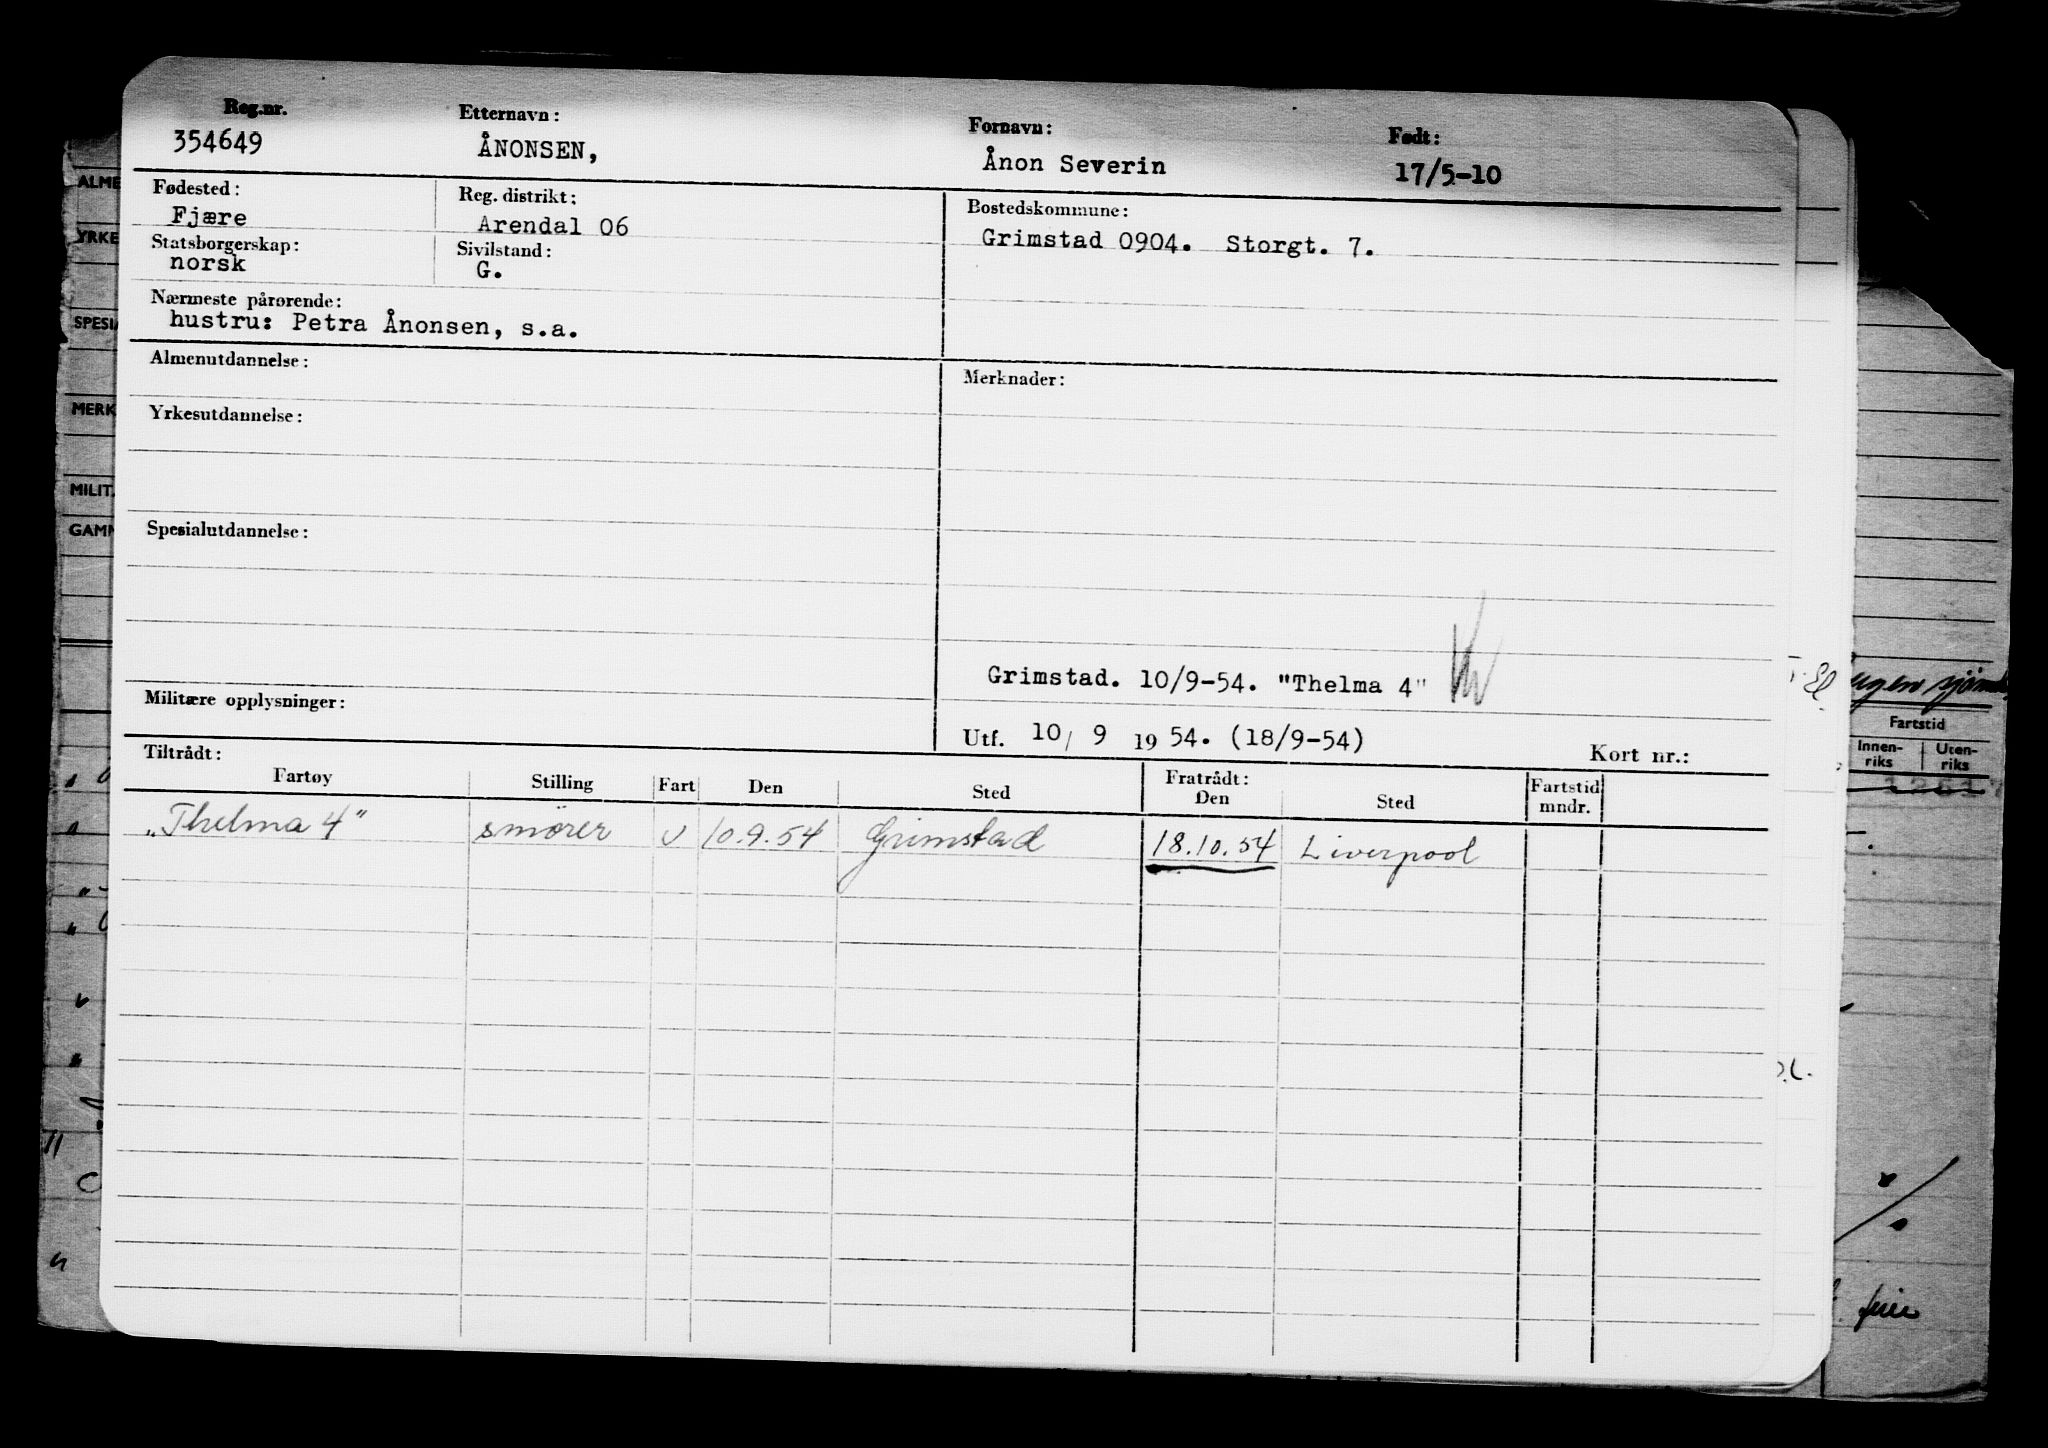 Reg.nr. Etternavn: Fornavn: Født:
354649 ÅNONSEN, Ånon Severin 17/5-10
Fødested: Reg. distrikt: Bostedskommune:
Fjære Arendal 06 Grimstad 0904. Storgt. 7.
Statsborgerskap: Sivilstand:
norsk G.
Nærmeste pårørende:
hustru: Petra Ånonsen, s.a.
Almenutdannelse: Merknader:
Yrkesutdannelse:
Spesialutdannelse:
Grimstad. 10/9-54. "Thelma 4"
Militære opplysninger:
Utf. 10/ 9 19 54. (18/9-54) Kort nr.:
Tiltrådt: Fratrådt:
Fartøy Stilling Fart Den Sted Den Sted Fartstid mndr.
„Thelma 4" smører U 10.9.54 Grimstad 18.10.54 Liverpool
ALME
YRKE
SPESIA
MERK
MILIT
GAMM
Fartstid
Innen-riks Uten-riks